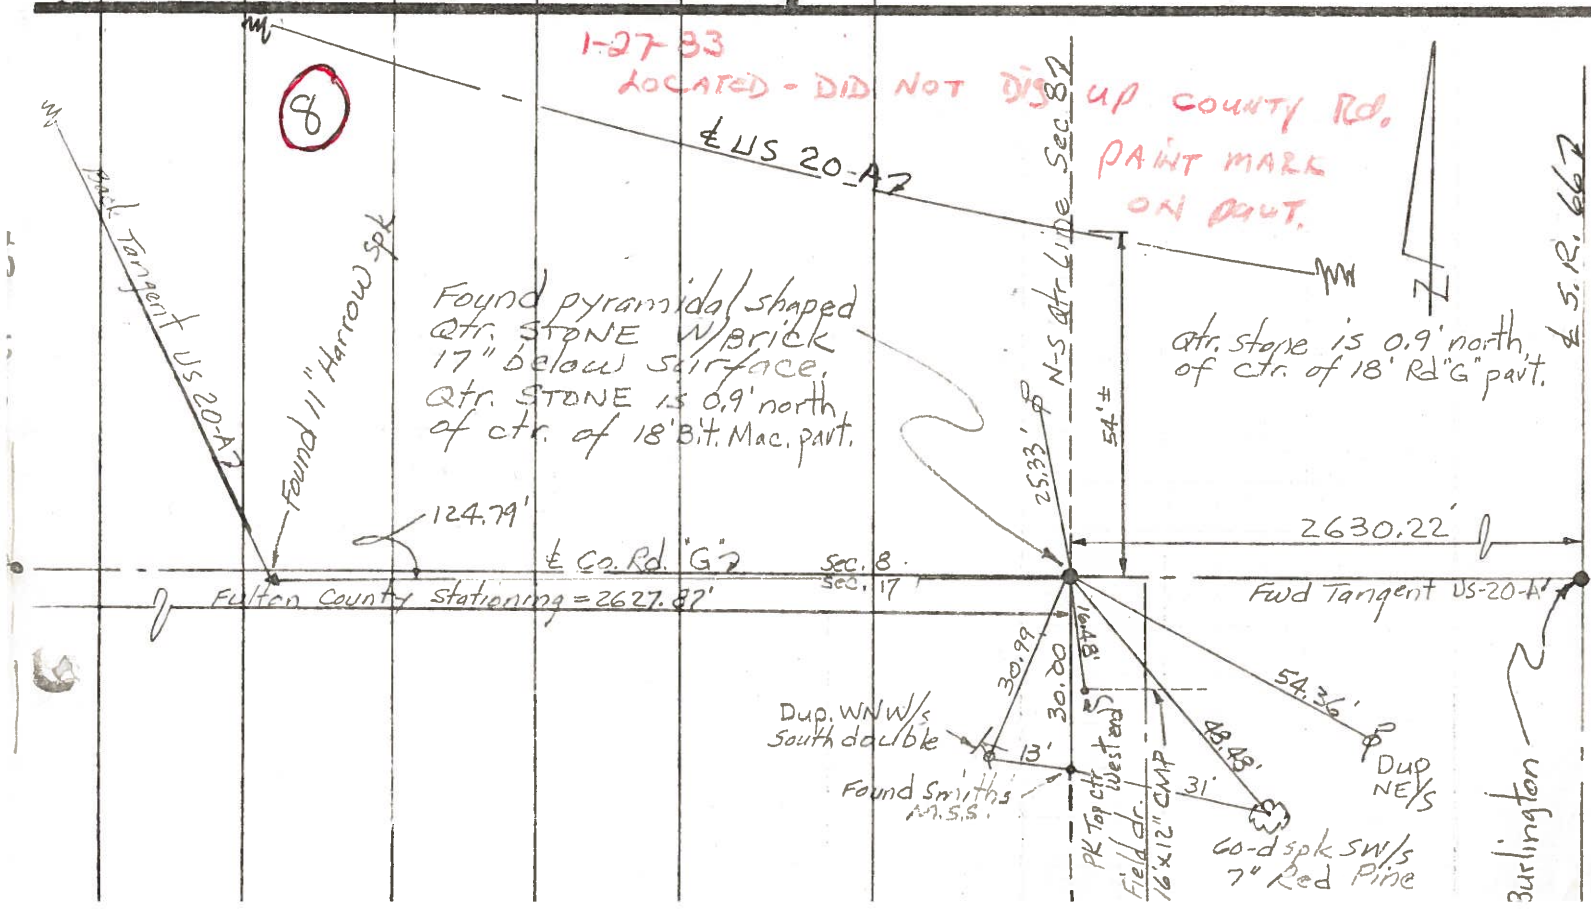 1-27-83
LOCATED - DID NOT DIG UP COUNTY Rd.
PAINT MARK
ON PAVT.
8
℄ US 20-A
N-S Qtr. Line Sec 8
℄ S.R. 66
Back Tangent US 20-A
Found 11" Harrow Spk
Found pyramidal shaped
Qtr. STONE W/Brick
17" below surface.
Qtr. STONE is 0.9' north
of ctr. of 18' Bit. Mac. pavt.
Qtr. stone is 0.9' north
of ctr. of 18' Rd "G" pavt.
Z
25.33'
54'±
124.79'
2630.22'
℄ Co. Rd. "G"
Sec. 8
Sec. 17
Fulton County Stationing = 2627.87'
Fwd Tangent US-20-A
30.99
30.00
16.48'
54.36'
48.48'
Dup. WNW/s
South double
13'
31'
Found Smith's
M.S.S.
PK Top ctr
West end
Field dr.
16'x12" CMP
Dup
NE/S
60-d spk SW/s
7" Red Pine
Burlington